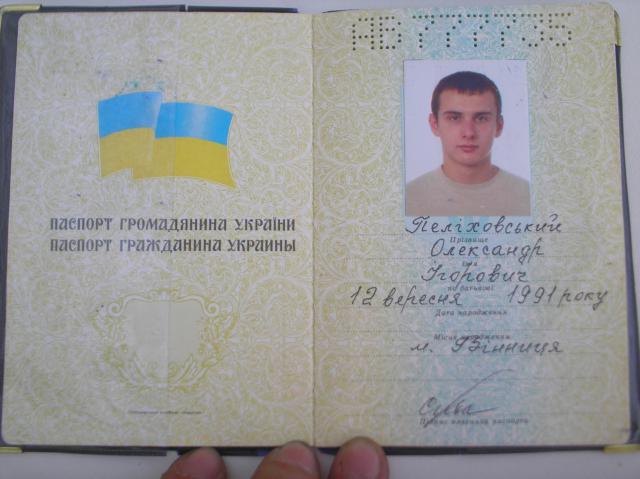 ПАСПОРТ ГРОМАДЯНИНА УКРАЇНИ
ПАСПОРТ ГРАЖДАНИНА УКРАИНЫ
АВ 777735
Пеліховський
Прізвище
Олександр
Ім'я
Ігорович
по батькові
12 вересня 1991 року
Дата народження
Місце народження
м. Вінниця
Підпис власника паспорта